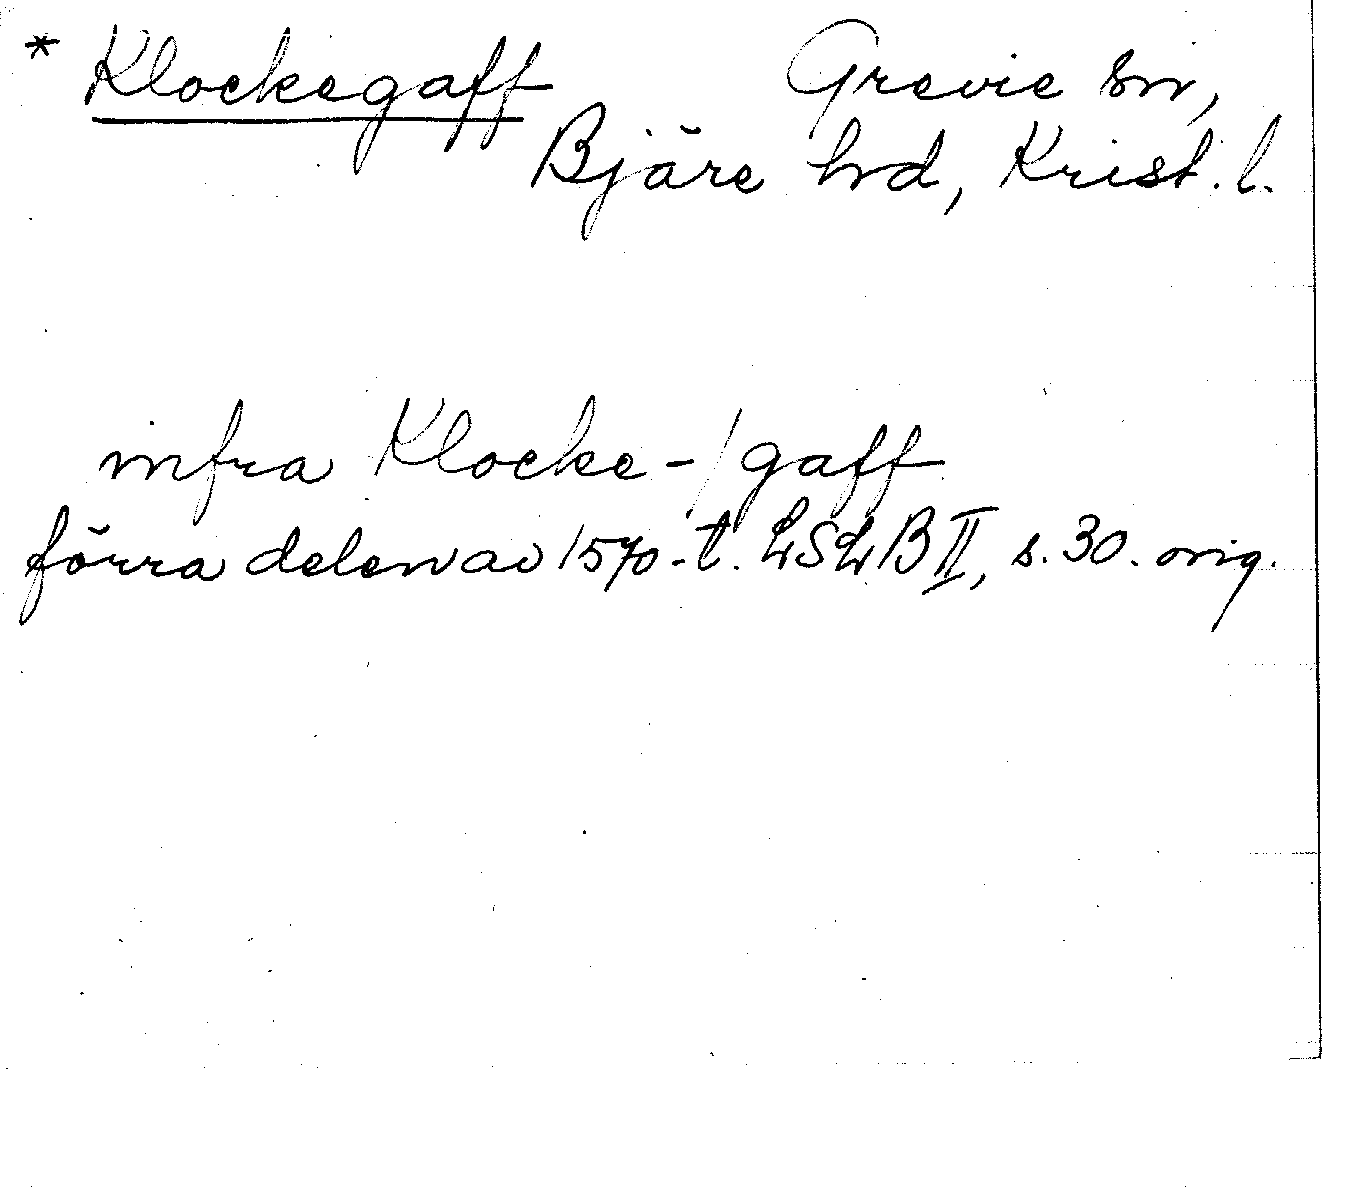 * Klockegaff Grevie sn,
Bjäre hd, Krist. l.
infra Klocke-/gaff
förra delen av 1570-t. LSLB II, s. 30. orig.